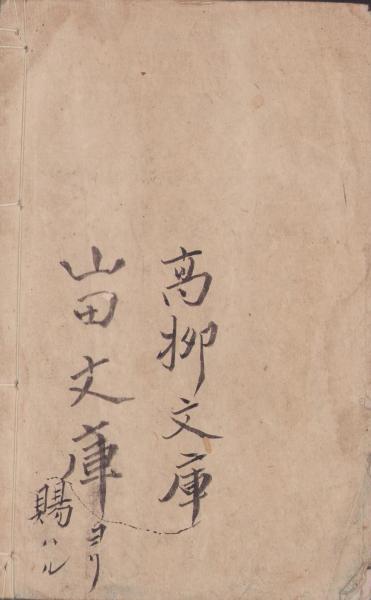 高柳文庫
山田文庫ヨリ
賜ハル